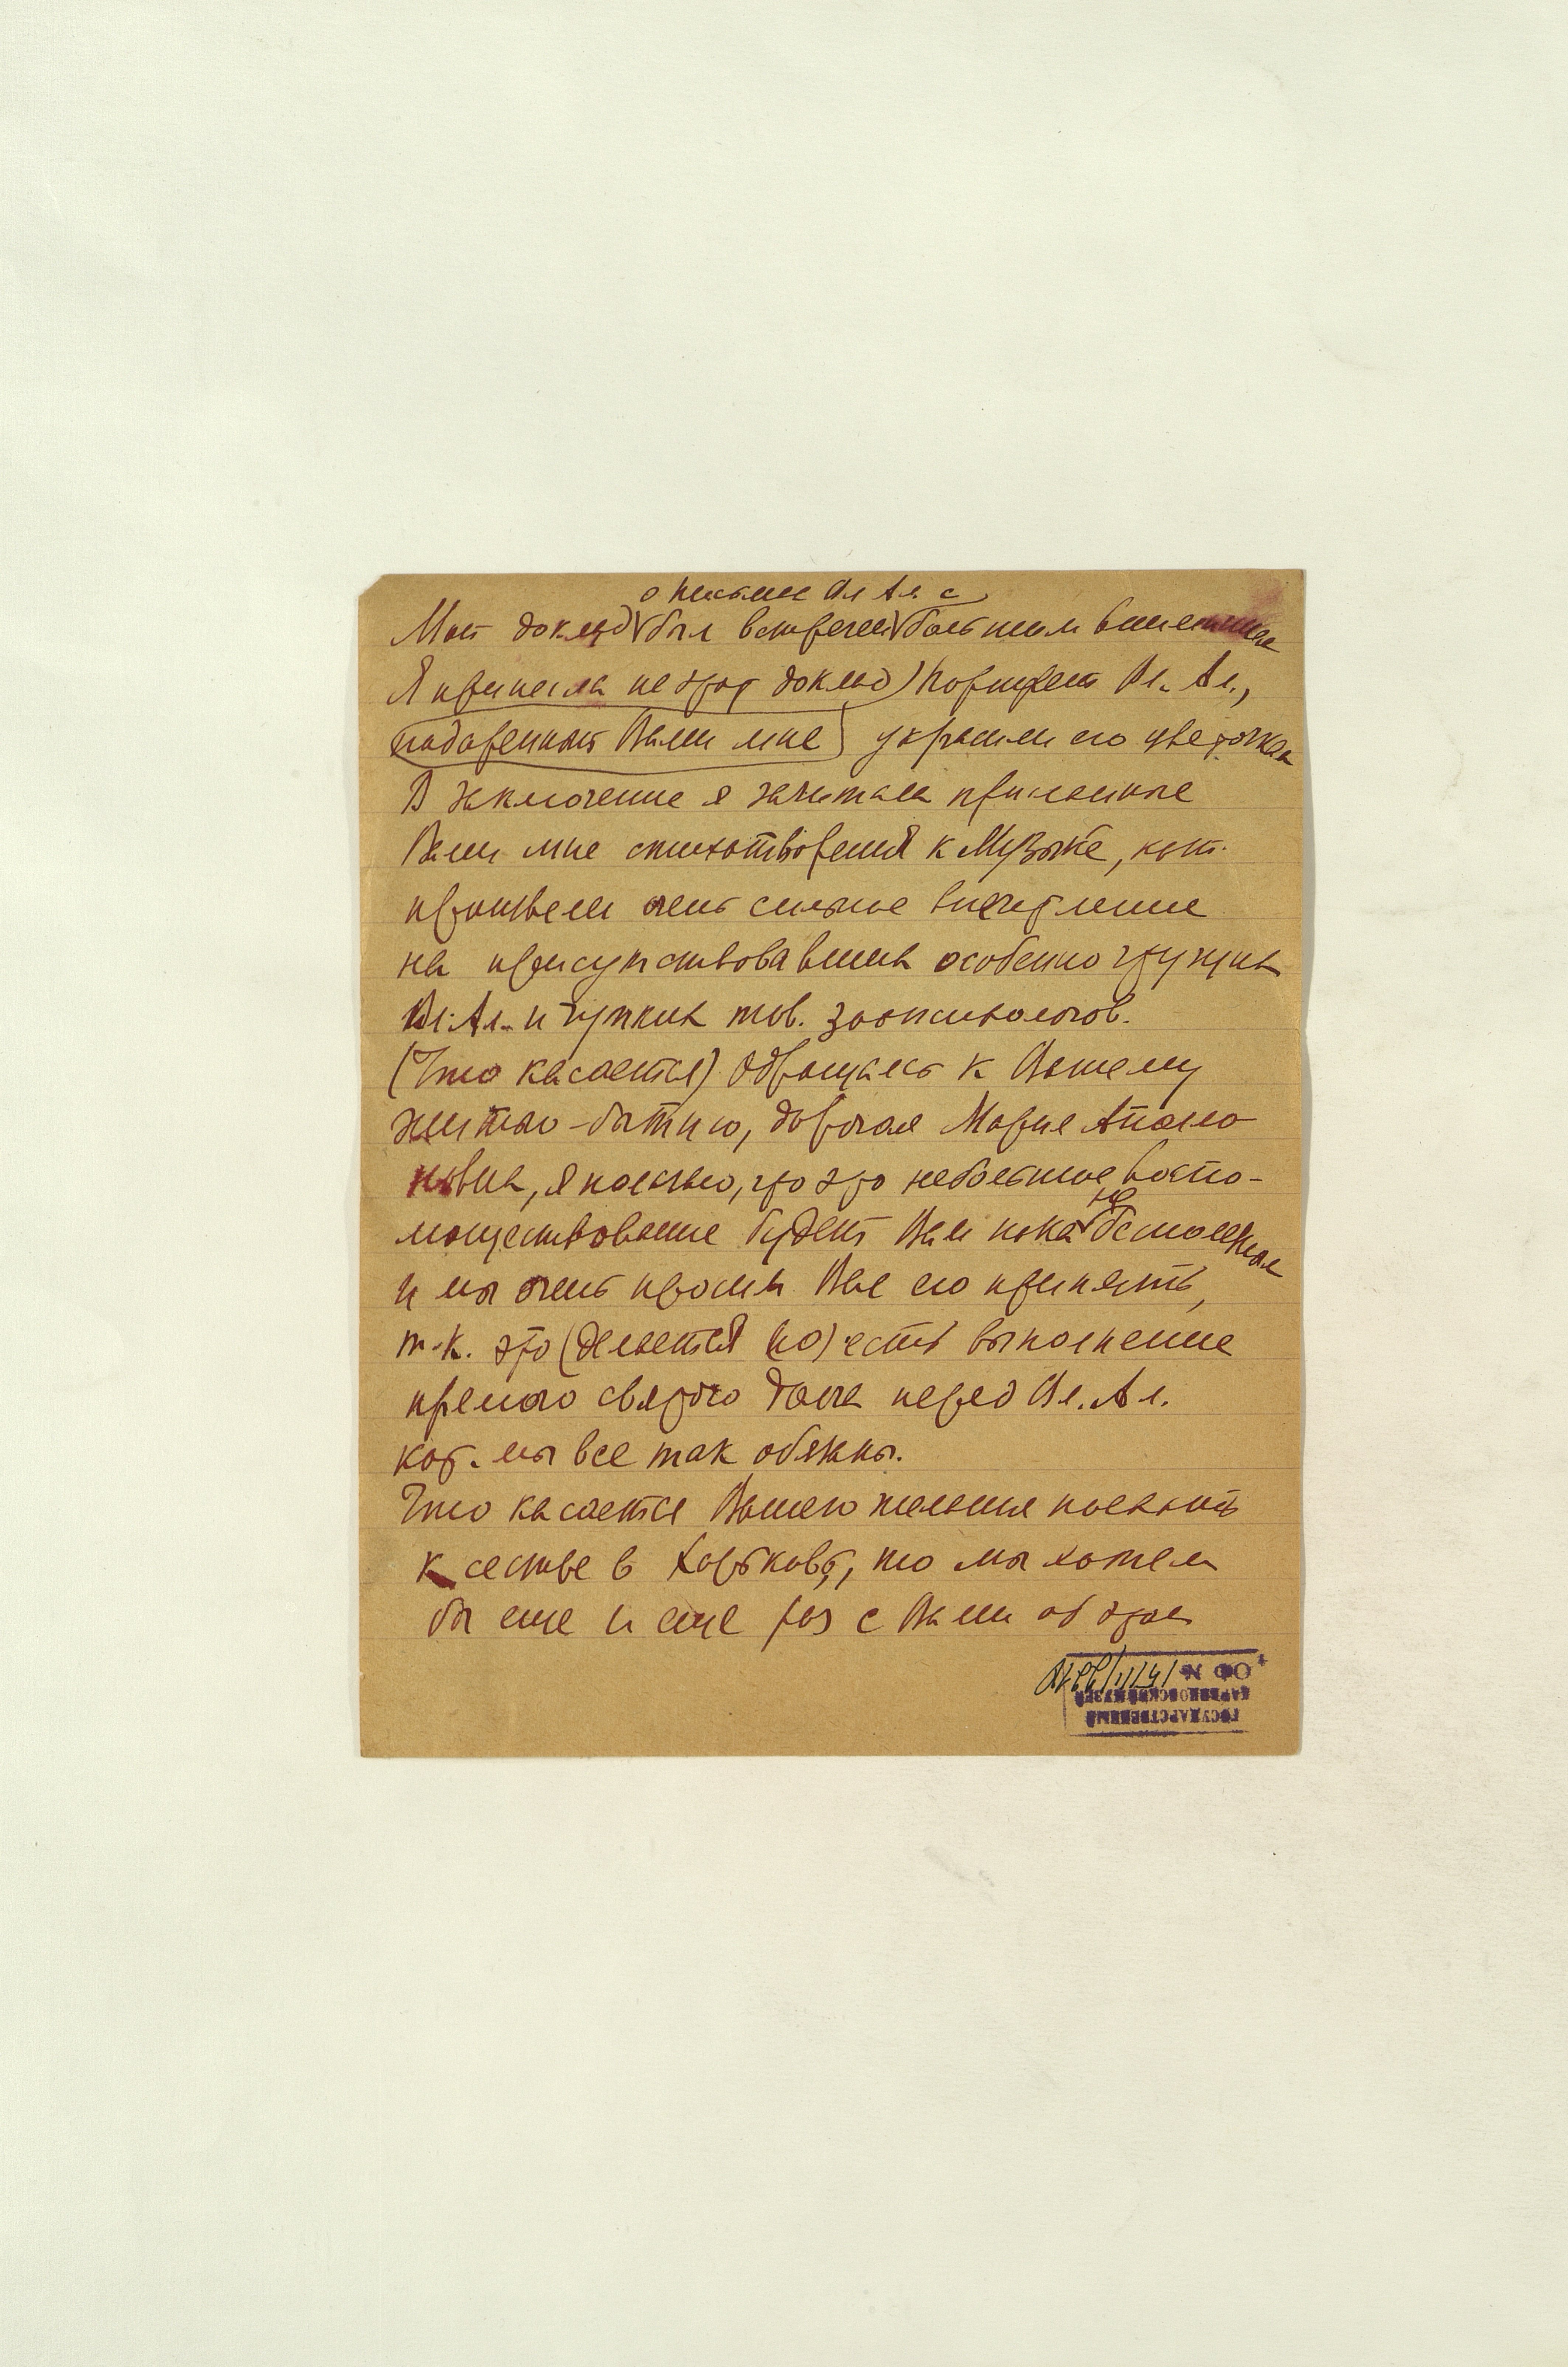 о письме Вл Ал. с
Мой доклад был встречен большим вниманием
Я принесла на этот доклад) портрет Вл. Ал.,
подаренный Вами мне) украсили его цветочками
В заключение я зачитала присланные
Вами мне стихотворения к Музыке, кот.
произвели очень сильное впечатление
на присутствовавших особенно чтущих
Вл. Ал. и чутких тов. зоопсихологов.
(Что касается) Обращаясь к Вашему
житью-бытию, дорогая Мария
я полагаю, что это небольшое воспо-
моществование будет Вам пока не бесполезным
и мы очень просим Вас его принять,
т.к. это (делается по) есть выполнение
прямого святого долга перед Вл. Ал.
кот. мы все так обязаны.
Что касается Вашего желания поехать
к сестре в Харьков, то мы хотели
бы еще и еще раз с Вами об этом
ГОСУДАРСТВЕННЫЙ
ДАРВИНОВСКИЙ МУЗЕЙ
ОФ №